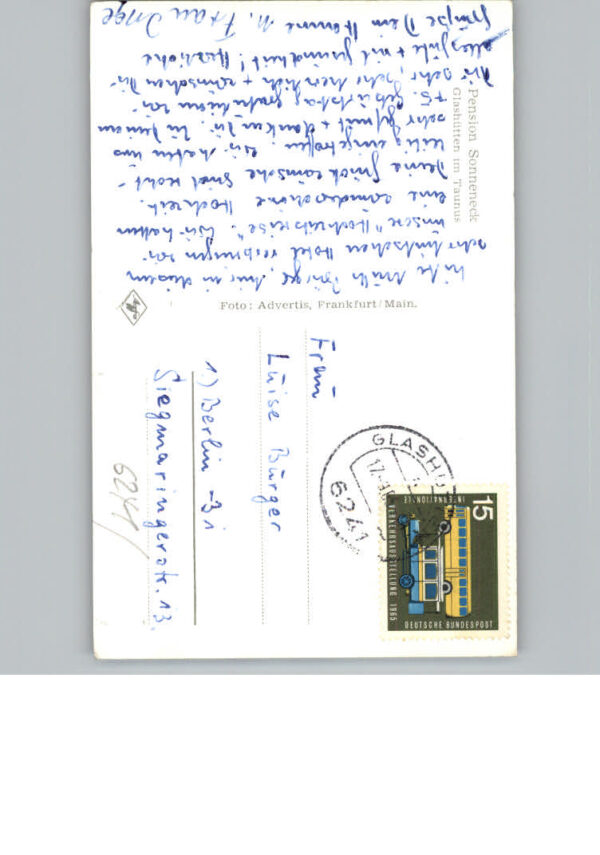 Pension Sonneneck
Glashütten im Taunus
Liebe Mutti Bürger, hier in diesem
sehr hübschen Hotel verbringen wir
unsere "Hochzeitsreise". Wir hatten
eine wunderschöne Hochzeit.
Deine Glückwünsche sind recht-
zeitig eingetroffen. Wir haben uns
sehr gefreut + danken Dir. Zu Deinem
75. Geburtstag gratulieren wir
Dir sehr, sehr herzlich + wünschen Dir
alles Gute + viel Gesundheit! Herzliche
Grüße Dein Hanne u. Frau Inge
Foto: Advertis, Frankfurt/Main.
Agfa
Frau
Luise Bürger
1) Berlin -31
Siegmaringerstr. 13
6241
GLASHÜ
17.-9.
6241
15
INTERNATIONALE
VERKEHRSAUSSTELLUNG 1965
DEUTSCHE BUNDESPOST